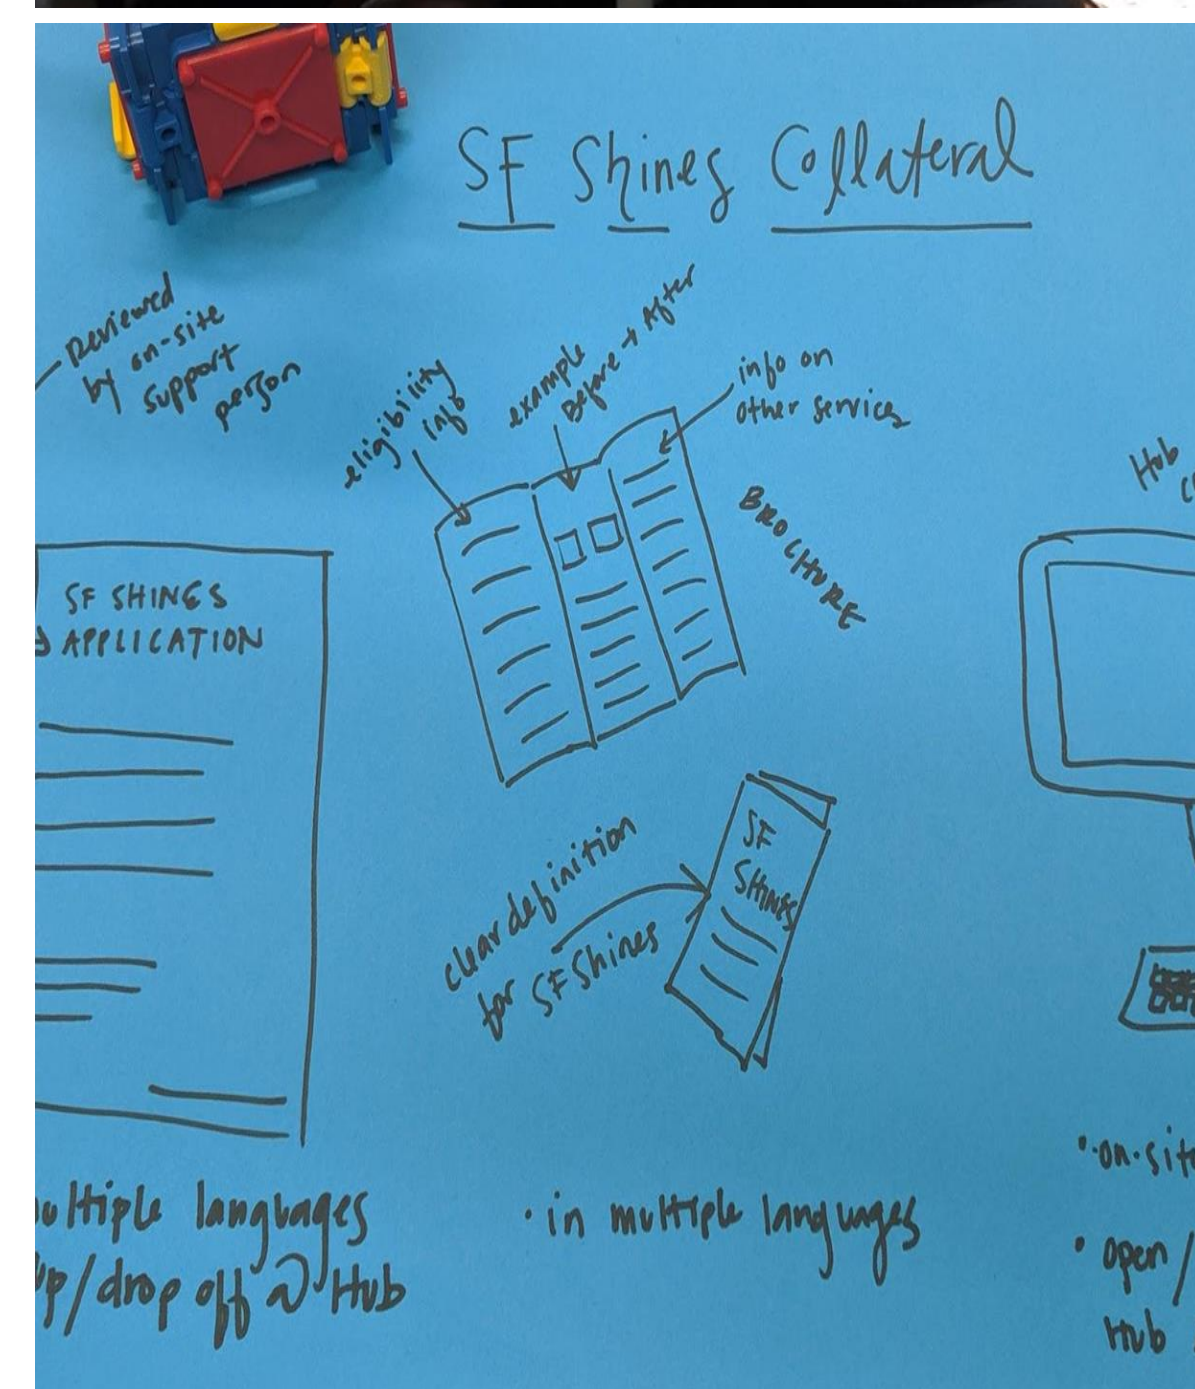 SF Shines Collateral
Reviewed
by on-site
support
person
eligibility
info
example
Before → After
info on
other services
BROCHURE
SF SHINES
APPLICATION
Hub
clear definition
for SF Shines
SF
SHINES
ultiple languages
up/drop off @ Hub
· in multiple languages
• on-site
• open/
Hub